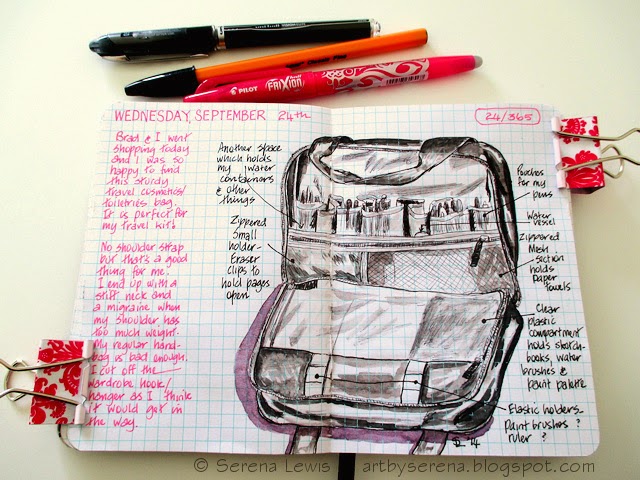 PILOT FRIXION
WEDNESDAY, SEPTEMBER 24th
24/365
Brad & I went
shopping today
and I was so
happy to find
this sturdy
travel cosmetics/
toiletries bag.
It is perfect for
my travel kit!
No shoulder strap
but that's a good
thing for me.
I end up with a
stiff neck and
a migraine when
my shoulder has
too much weight.
My regular hand-
bag is bad enough.
I cut off the
wardrobe hook/
hanger as I think
it would get in
the way.
Another space
which holds
my water
containers
& other
things
Zippered
Small
holder-
Eraser
clips to
hold pages
open
Pouches
for my
pens
Water
vessel
Zippered
Mesh
section
holds
paper
towels
Clear
plastic
compartment
holds sketch-
books, water
brushes &
paint palette
Elastic holders-
Paint brushes?
ruler?
14
© Serena Lewis artbyserena.blogspot.com